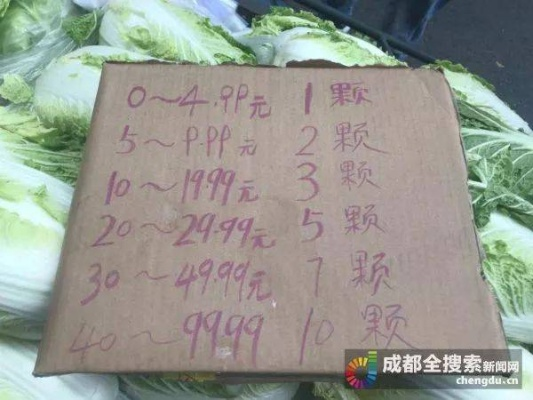 0～4.99元 1颗
5～9.99 2颗
10～19.99元 3颗
20～29.99元 5颗
30～49.99元 7颗
40～99.99 10颗
成都全搜索新闻网
chengdu.cn